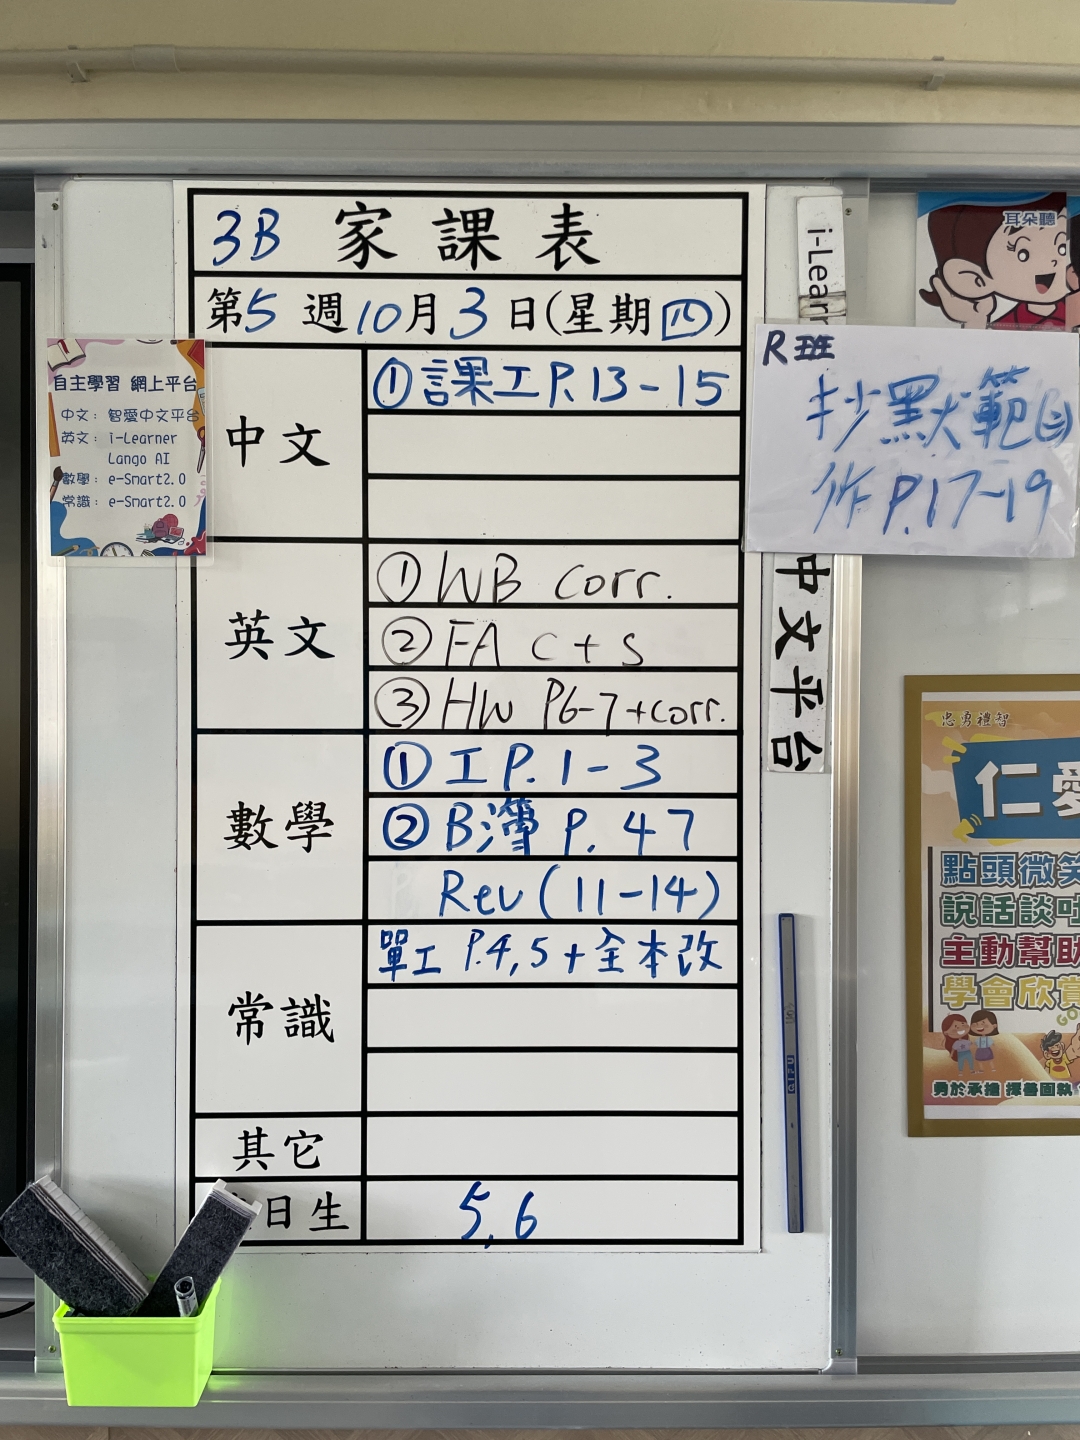 3B 家課表
第5週10月3日(星期四)
中文
①課工P.13-15
英文
①WB corr.
②FA C+S
③HW P6-7+corr.
數學
①工P.1-3
②B簿 P.47
Rev(11-14)
常識
單工 P.4,5+全本改
其它
日生
5,6
自主學習 網上平台
中文：智愛中文平台
英文：i-Learner
Lango AI
數學：e-Smart2.0
常識：e-Smart2.0
i-Lear
R班
抄默範
作P.17-19
中文平台
耳朵聽
忠勇禮智
仁愛
點頭微笑
說話談
主動幫助
學會欣賞
勇於承擔 擇善固執